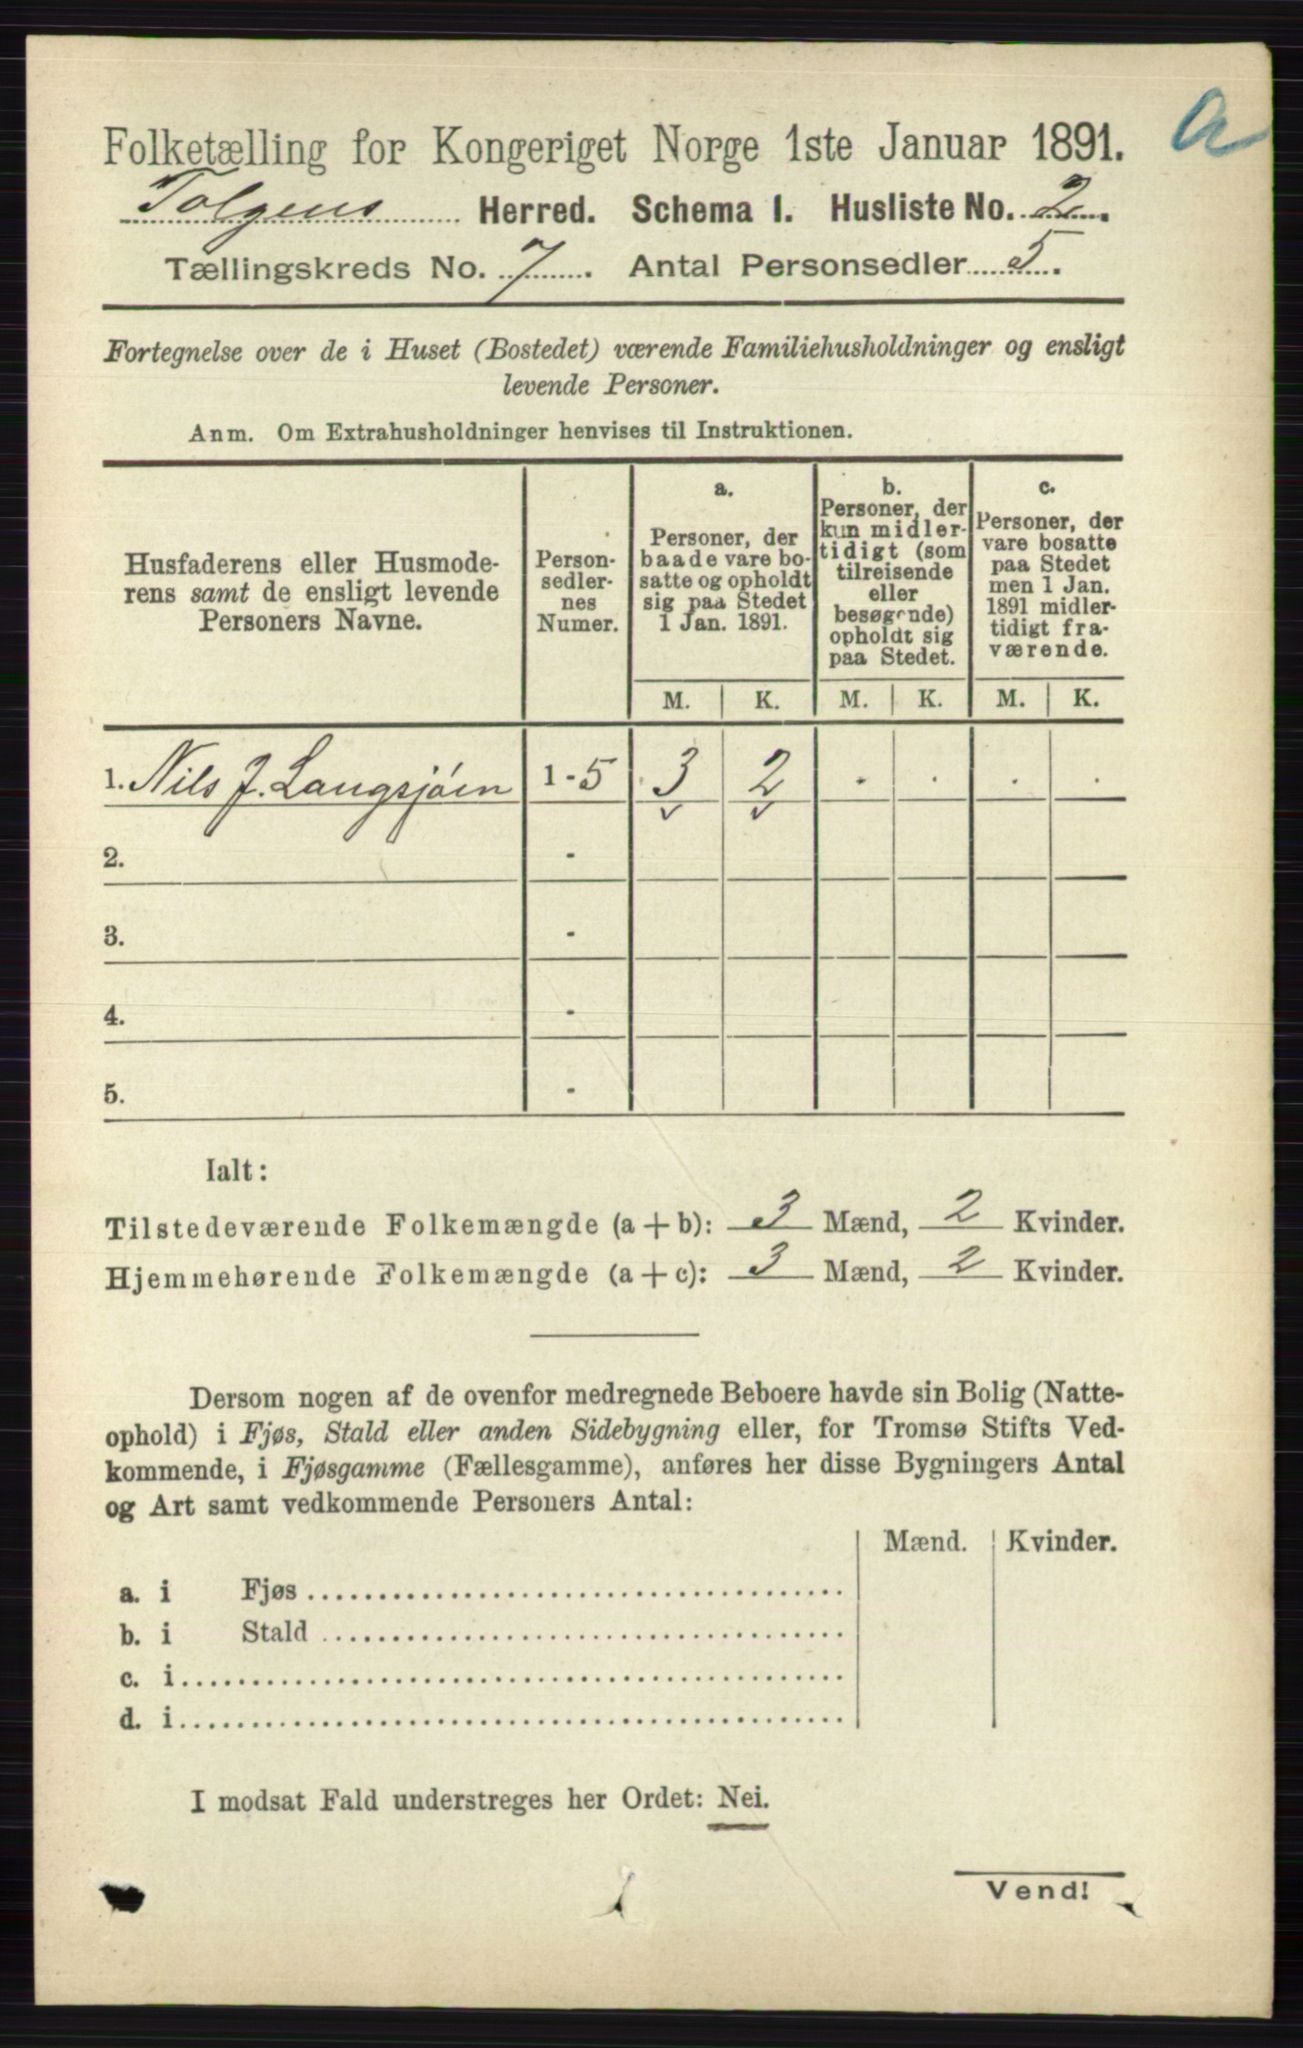 a
Folketælling for Kongeriget Norge 1ste Januar 1891.
Tolgens Herred. Schema 1. Husliste No. 2.
Tællingskreds No. 7. Antal Personsedler 5.
Fortegnelse over de i Huset (Bostedet) værende Familiehusholdninger og ensligt
levende Personer.
Anm. Om Extrahusholdninger henvises til Instruktionen.
Husfaderens eller Husmode-
rens samt de ensligt levende
Personers Navne.
Person-
sedler-
nes
Numer.
a.
Personer, der
baade vare bo-
satte og opholdt
sig paa Stedet
1 Jan. 1891.
b.
Personer, der
kun midler-
tidigt (som
tilreisende
eller
besøgende)
opholdt sig
paa Stedet.
c.
Personer, der
vare bosatte
paa Stedet
men 1 Jan.
1891 midler-
tidigt fra-
værende.
M. K. M. K. M. K.
1. Nils J. Langsjöen 1-5 3 2 . . . .
2. -
3. -
4. -
5. -
Ialt:
Tilstedeværende Folkemængde (a + b): 3 Mænd, 2 Kvinder.
Hjemmehørende Folkemængde (a + c): 3 Mænd, 2 Kvinder.
Dersom nogen af de ovenfor medregnede Beboere havde sin Bolig (Natte-
ophold) i Fjøs, Stald eller anden Sidebygning eller, for Tromsø Stifts Ved-
kommende, i Fjøsgamme (Fællesgamme), anføres her disse Bygningers Antal
og Art samt vedkommende Personers Antal:
Mænd. Kvinder.
a. i Fjøs
b. i Stald
c. i
d. i
I modsat Fald understreges her Ordet: Nei.
Vend!